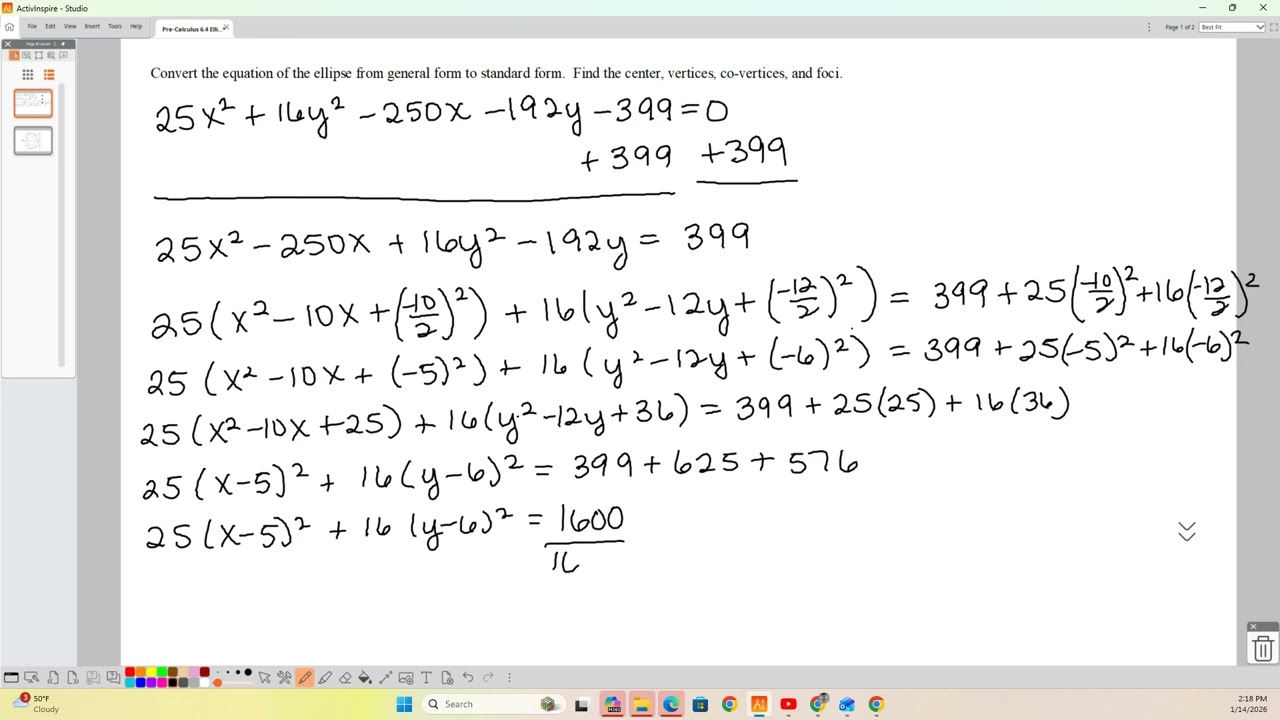 ActivInspire - Studio
File Edit View Insert Tools Help
Pre-Calculus 6.4 Elli...
Page 1 of 2 Best Fit
Convert the equation of the ellipse from general form to standard form. Find the center, vertices, co-vertices, and foci.
25x² + 16y² - 250x - 192y - 399 = 0
+ 399 + 399
25x² - 250x + 16y² - 192y = 399
25(x² - 10x + (-10/2)²) + 16(y² - 12y + (-12/2)²) = 399 + 25(-10/2)² + 16(-12/2)²
25(x² - 10x + (-5)²) + 16(y² - 12y + (-6)²) = 399 + 25(-5)² + 16(-6)²
25(x² - 10x + 25) + 16(y² - 12y + 36) = 399 + 25(25) + 16(36)
25(x-5)² + 16(y-6)² = 399 + 625 + 576
25(x-5)² + 16(y-6)² = 1600
16
50°F
Cloudy
Search
2:18 PM
1/14/2026